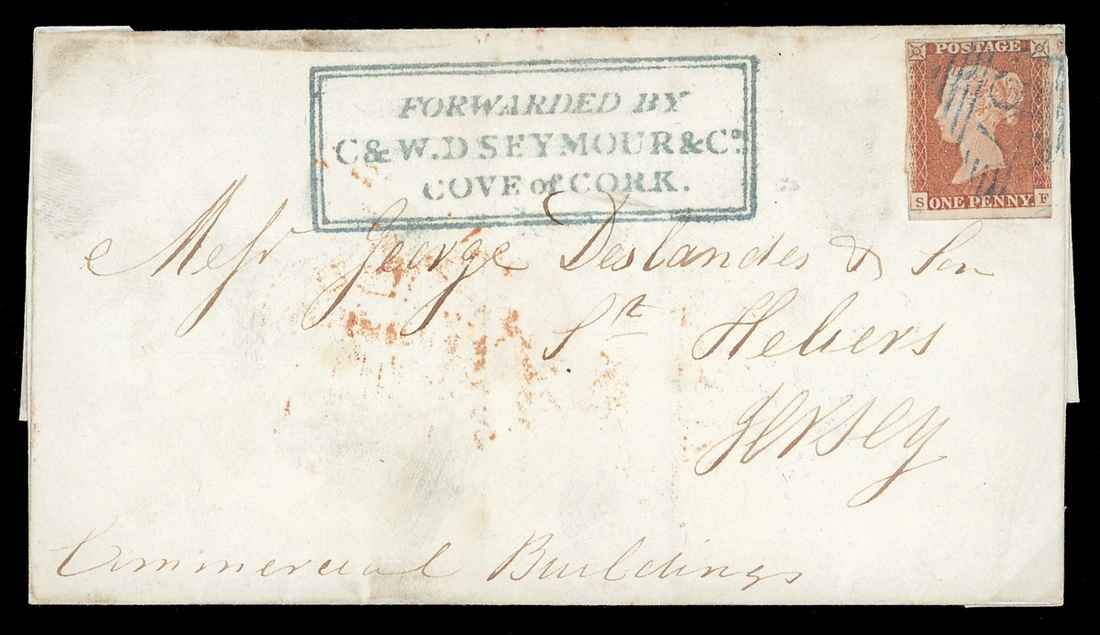 FORWARDED BY
C & W.D SEYMOUR & Co.
COVE of CORK.
POSTAGE
S ONE PENNY F
Messr George Deslandes & Son
St Heliers
Jersey
Commercial Buildings